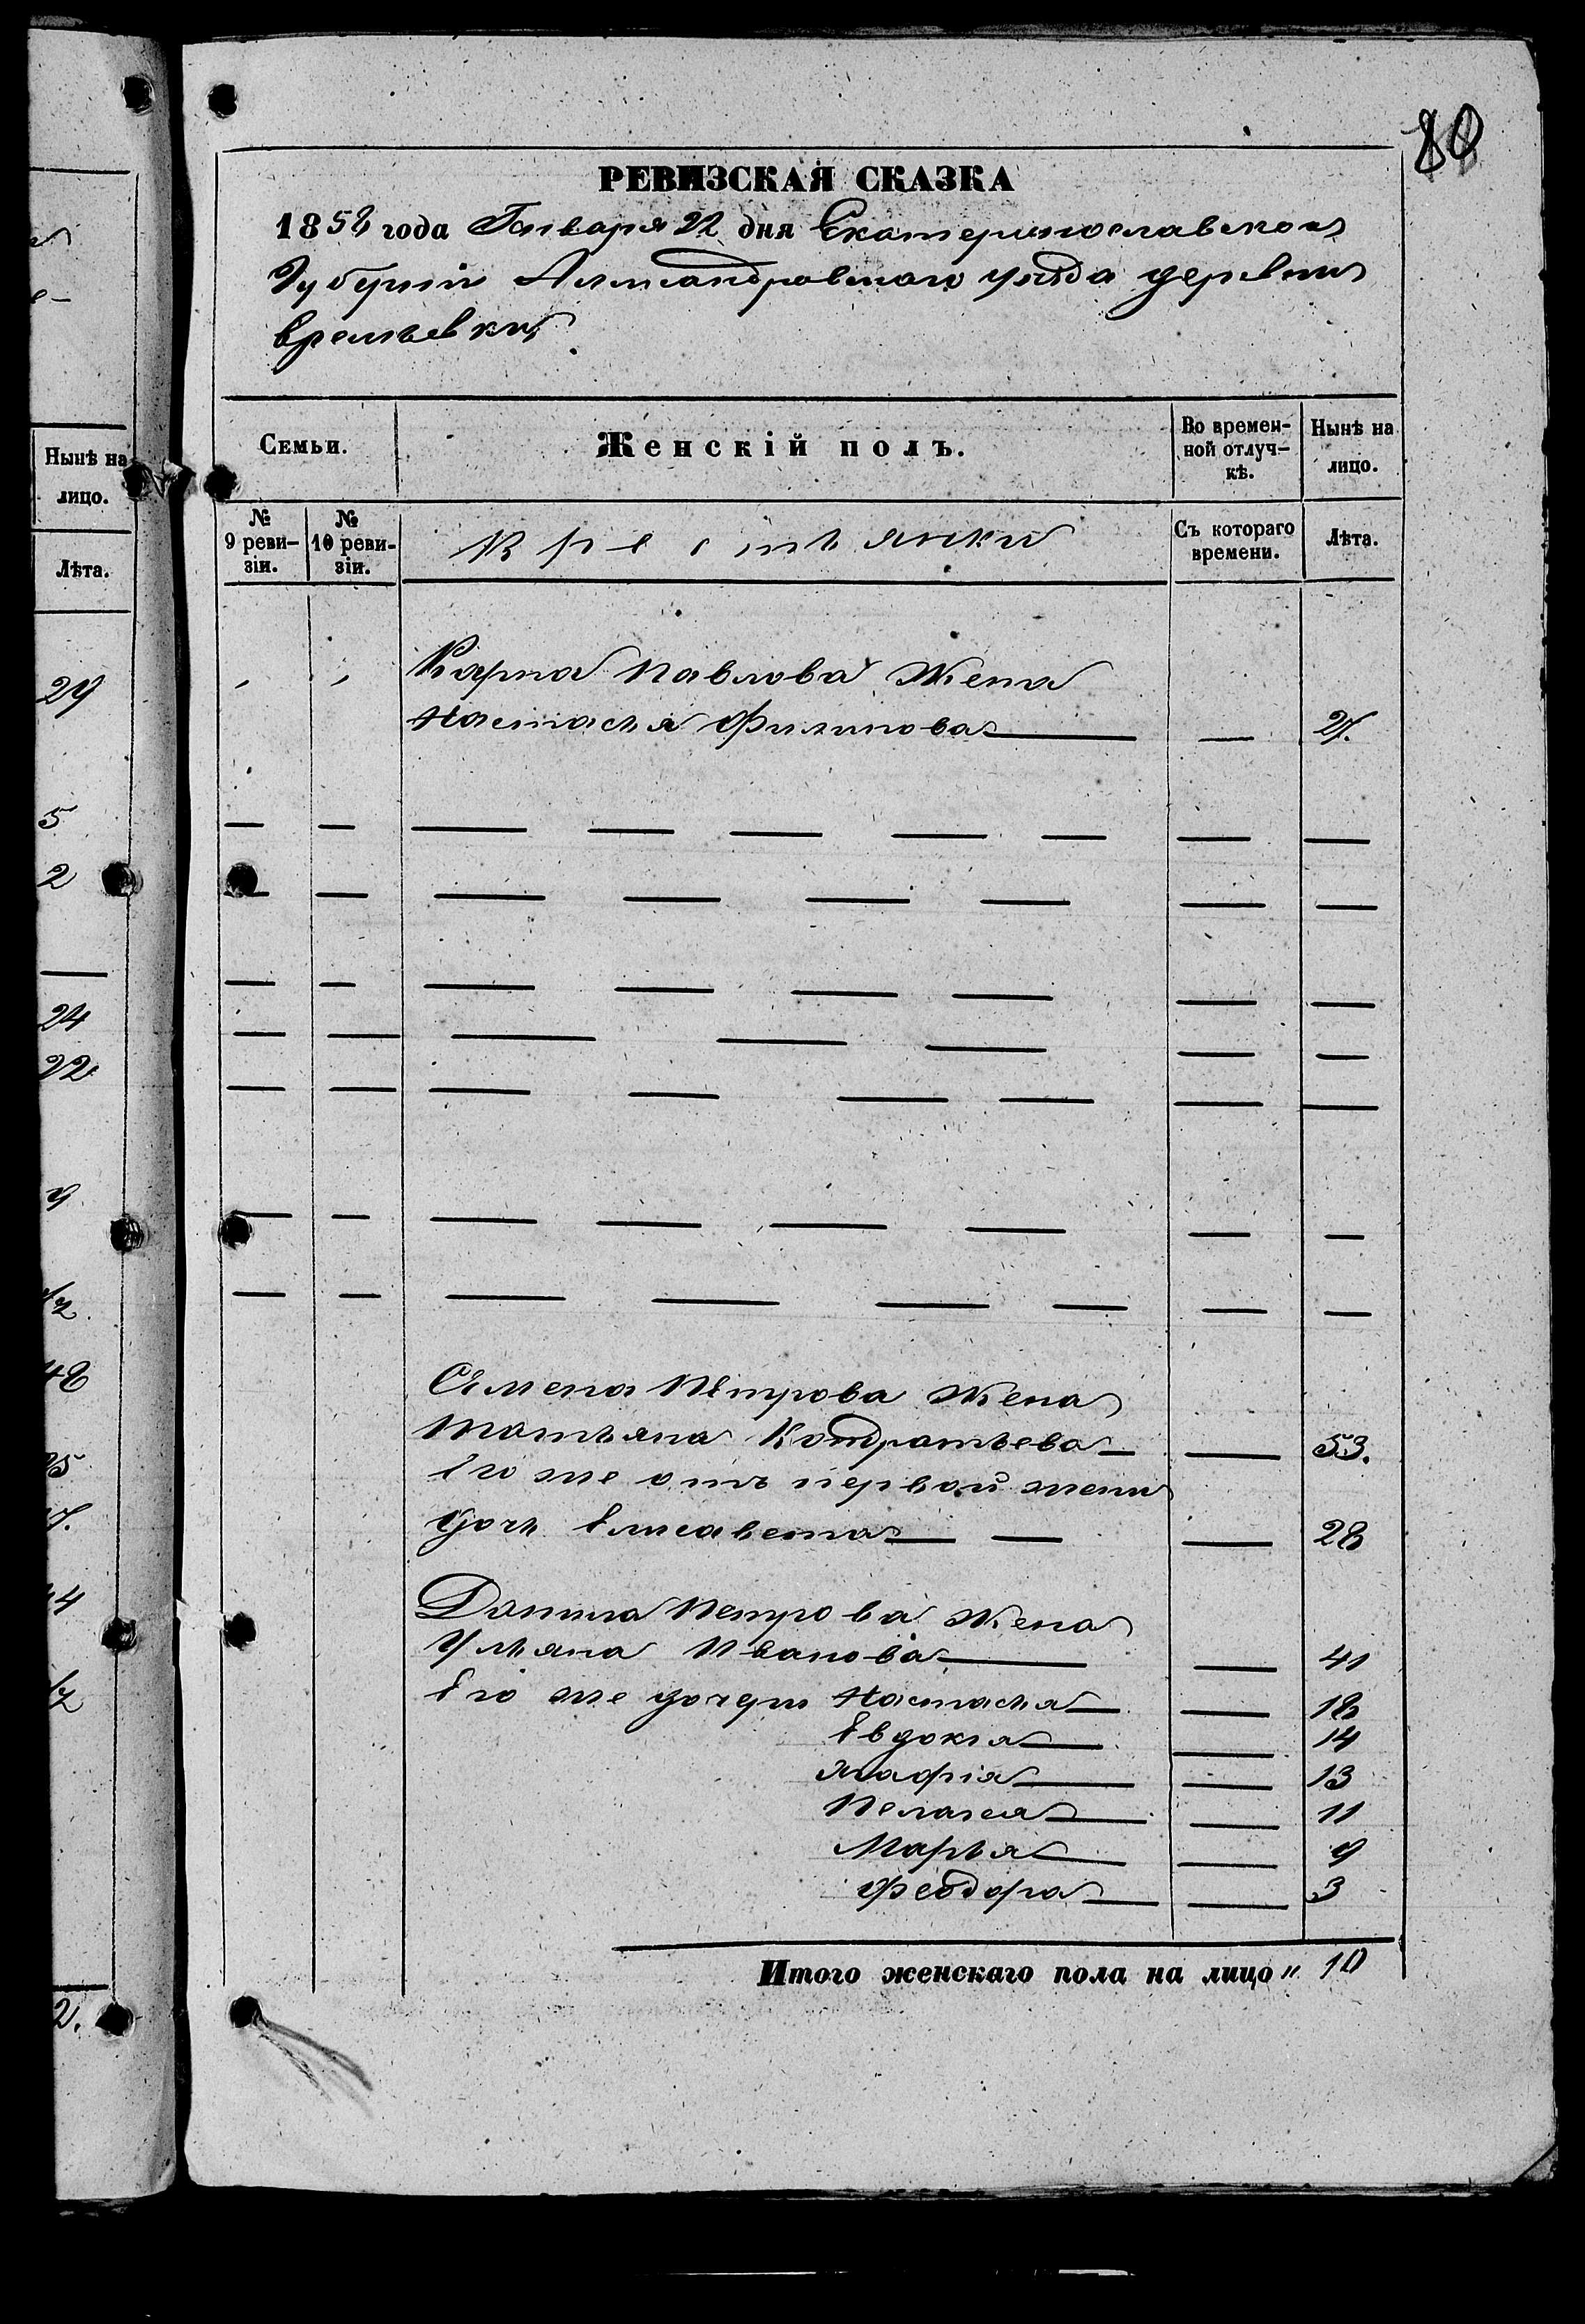 80
РЕВИЗСКАЯ СКАЗКА
1858 года Генваря 22 дня Екатеринославской
Губерніи Александровскаго уѣзда деревни
Времьевки
Семьи.
Женскій полъ.
Во времен-
ной отлуч-
кѣ.
Нынѣ на
лицо.
№
9 реви-
зіи.
№
10 реви-
зіи.
Крестьянки
Съ котораго
времени.
Лѣта.
Карпа Павлова Жена
Настасья Филипова — — 27.
Семена Петрова Жена
Татьяна Кондратьева — — 53.
Его же отъ первой жены
дочь Елисавета — — — 28
Данила Петрова Жена
Ульяна Иванова — — 41
Его же дочери Настасья — — 18
Евдокія — — 14
Агафія — — 13
Пелагея — — 11
Марья — — 9
Феодора — — 3
Итого женскаго пола на лицо „ 10
Нынѣ на
лицо.
Лѣта.
29
5
2
24
22
9
48